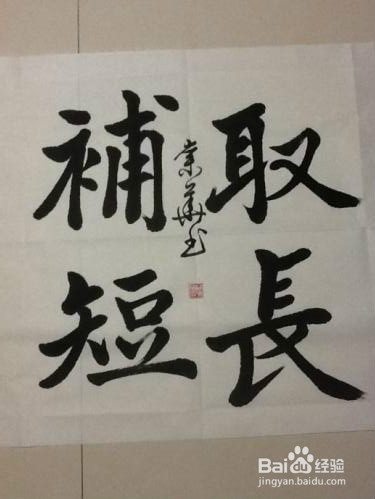 取長
補短
Baidu经验
jingyan.baidu.com